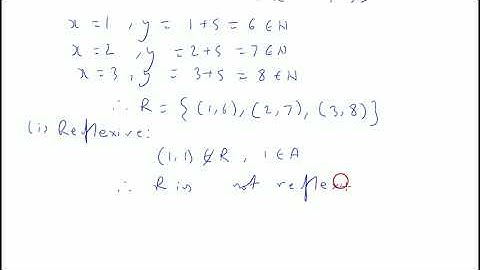 x = 1 , y = 1+5 = 6 ∈ N
x = 2 , y = 2+5 = 7 ∈ N
x = 3 , y = 3+5 = 8 ∈ N
∴ R = { (1,6), (2,7), (3,8) }
(i) Reflexive:
(1,1) ∉ R , 1 ∈ A
∴ R is not reflexi